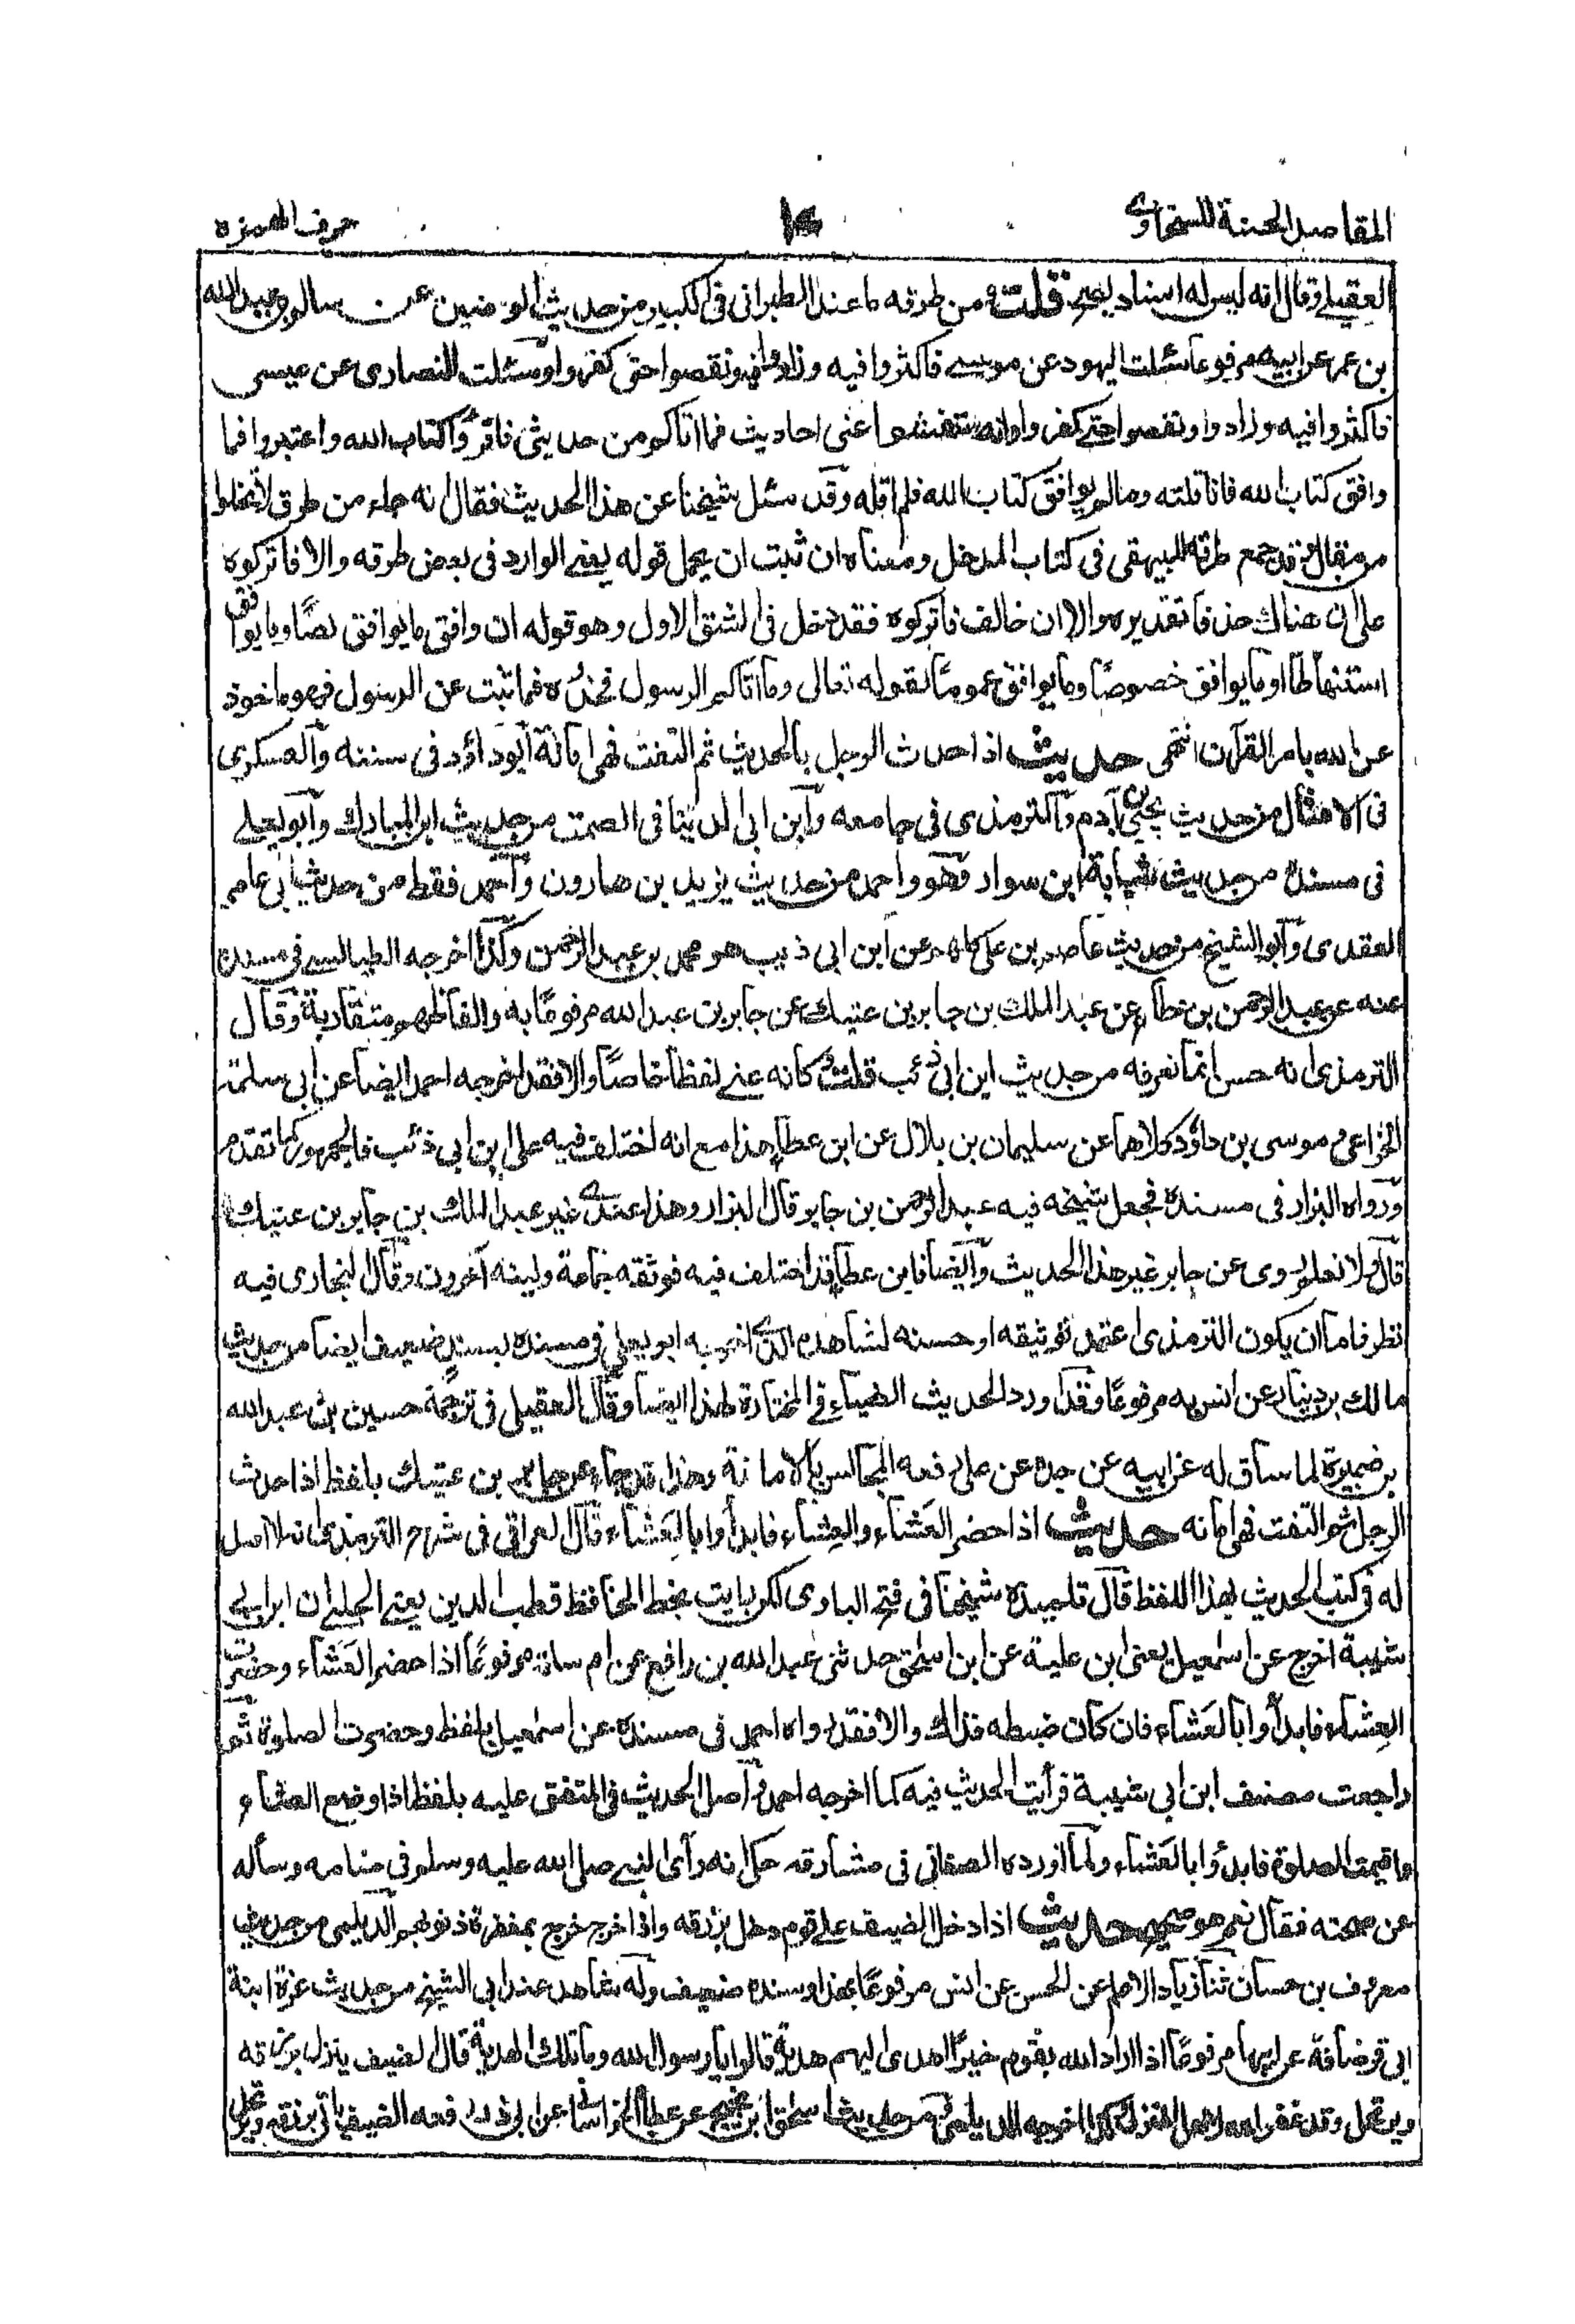 المقاصد الحسنة للسخاوى
١٤
حرف الهمزه
العقيلے وقال انه ليس له اسناد يصح قلت ومن طرقه ما عند الطبرانى فى الكبير من حديث الوضين عن سالم بن عبد الله
بن عمر عن ابيه مرفوعا سئلت اليهود عن موسے فاكثروا فيه وزادوا ونقصوا حتى كفروا وسئلت النصارى عن عيسى
فاكثروا فيه وزادوا ونقصوا حتے كفروا وانه ستفشوا عنى احاديث فما اتاكم من حديثى فاقرؤا كتاب الله واعتبروا فما
وافق كتاب الله فانا قلته وما لم يوافق كتاب الله فلم اقله وقد سئل شيخنا عن هذا الحديث فقال انه جاء من طرق لا تخلوا
من مقال وقد جمع طرقه البيهقى فى كتاب المدخل ومعناه ان ثبت ان يحمل قوله يعنے الوارد فى بعض طرقه والا فاتركوه
على ان هناك حذفا تقديره والا ان خالف فاتركوه فقد دخل فى الشق الاول وهو قوله ان وافق ما يوافق نصًا وما يوافق
استنباطًا او ما يوافق خصوصًا وما يوافق عمومًا بقوله تعالى وما اتاكم الرسول فخذُوه فما ثبت عن الرسول فهو ماخوذ
عن الله بامر القرآن انتهى حديث اذا حدث الرجل بالحديث ثم التفت فهى امانة ابو داؤد فى سننه والعسكرى
فى الامثال من حديث يحيى بن آدم والترمذى فى جامعه وابن ابى الدنيا فى الصمت من حديث ابن المبارك وابو يعلے
فى مسنده من حديث شبابة ابن سوار فهو واحمد من حديث يزيد بن هارون واحمد فقط من حديث ابى عامر
العقدى وابو الشيخ من حديث عاصم بن على كلهم عن ابن ابى ذيب هو محمد بن عبد الرحمن وكذا اخرجه الطيالسے فى مسنده
عنه عن عبد الرحمن بن عطاء عن عبد الملك بن جابر بن عتيك عن جابر بن عبد الله مرفوعًا به والفاظهم متقاربة وقال
الترمذى انه حسن انما نعرفه من حديث ابن ابى ذئب قلت وكانه عنے لفظًا خاصًا والا فقد اخرجه احمد ايضا عن ابى سلمة
الخزاعى وموسى بن داؤد كلاهما عن سليمان بن بلال عن ابن عطاء هذا مع انه اختلف فيه على ابن ابى ذئب فالجمهور كما تقدم
ورواه البزار فى مسنده فجعل شيخه فيه عبد الرحمن بن جابر قال البزار وهذا عندے غير عبد الملك بن جابر بن عتيك
قال ولا نعلم روى عن جابر غير هذا الحديث وايضًا فابن عطاء قد اختلف فيه فوثقه جماعة ولينه آخرون وقال البخارى فيه
نظر فاما ان يكون الترمذى اعتمد توثيقه او حسنه لشاهده الذے اخرجه ابو يعلى فى مسنده بسند ضعيف ايضا من حديث
مالك بن دينار عن انس به مرفوعًا وقد اورد الحديث الضياء فى المختارة لهذا ايضًا وقال العقيلى فى ترجمة حسين بن عبد الله
بن ضميرة لما ساق له عن ابيه عن جده عن على رفعه المجالس بالامانة وهذا قد جاء عن جابر بن عتيك بلفظ اذا حدث
الرجل ثم التفت فهى امانه حديث اذا حضر العَشاء والعِشاء فابدأوا بالعَشاء قال العراقى فى شرح الترمذى انه لا اصل
له فى كتب الحديث بهذا اللفظ قال تلميذه شيخنا فى فتح البارى لكن رايت بخط الحافظ قطب الدين يعنے الحلبے ان ابن ابے
شيبة اخرج عن اسمعيل يعنى ابن علية عن ابن اسحق حدثنى عبد الله بن رافع عن ام سلمة مرفوعًا اذا حضر العَشاء وحضرت
العِشاء فابدأوا بالعَشاء فان كان ضبطه فذاك والا فقد رواه احمد فى مسنده عن اسمعيل بلفظ وحضرت الصلوة ثم
راجعت مصنف ابن ابى شيبة فرأيت الحديث فيه كما اخرجه احمد واصل الحديث فى المتفق عليه بلفظ اذا وضع العشاء و
اقيمت الصلوة فابدؤا بالعَشاء ولما اورده الصغانى فى مشارقه حكى انه رآى النبے صلى الله عليه وسلم فى منامه وسأله
عن صحته فقال نعم هو صحيح حديث اذا دخل الضيف على قوم دخل برزقه واذا خرج خرج بمغفرة ذنوبهم الديلمى من حديث
معروف بن حسان ثنا زياد الاعلم عن الحسن عن انس مرفوعًا بهذا وسنده ضعيف وله شاهد عند ابى الشيخ من حديث عزة ابنة
ابى قرضافة عن ابيها مرفوعًا اذا اراد الله بقوم خيرًا اهدى اليهم هدية قالوا يا رسول الله وما تلك الهدية قال الضيف ينزل برزقه
ويرتحل وقد غفر الله لاهل المنزل كذا اخرجه الديلمى من حديث اسحق ابن نجيح عن عطاء الخراسانى عن ابى ذر رفعه الضيف ياتى برزقه ويرتحل